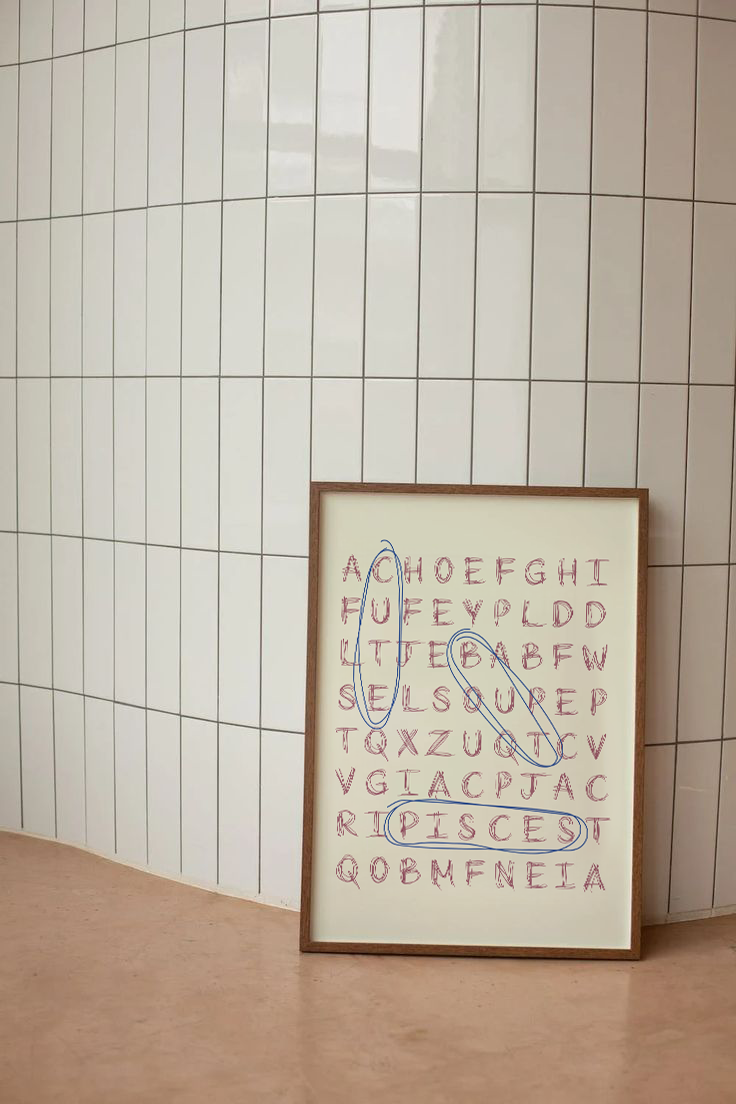 A C H O E F G H I
F U F E Y P L D D
L T J E B A B F W
S E L S O U P E P
T Q X Z U Q T C V
V G I A C P J A C
R I P I S C E S T
Q O B M F N E I A